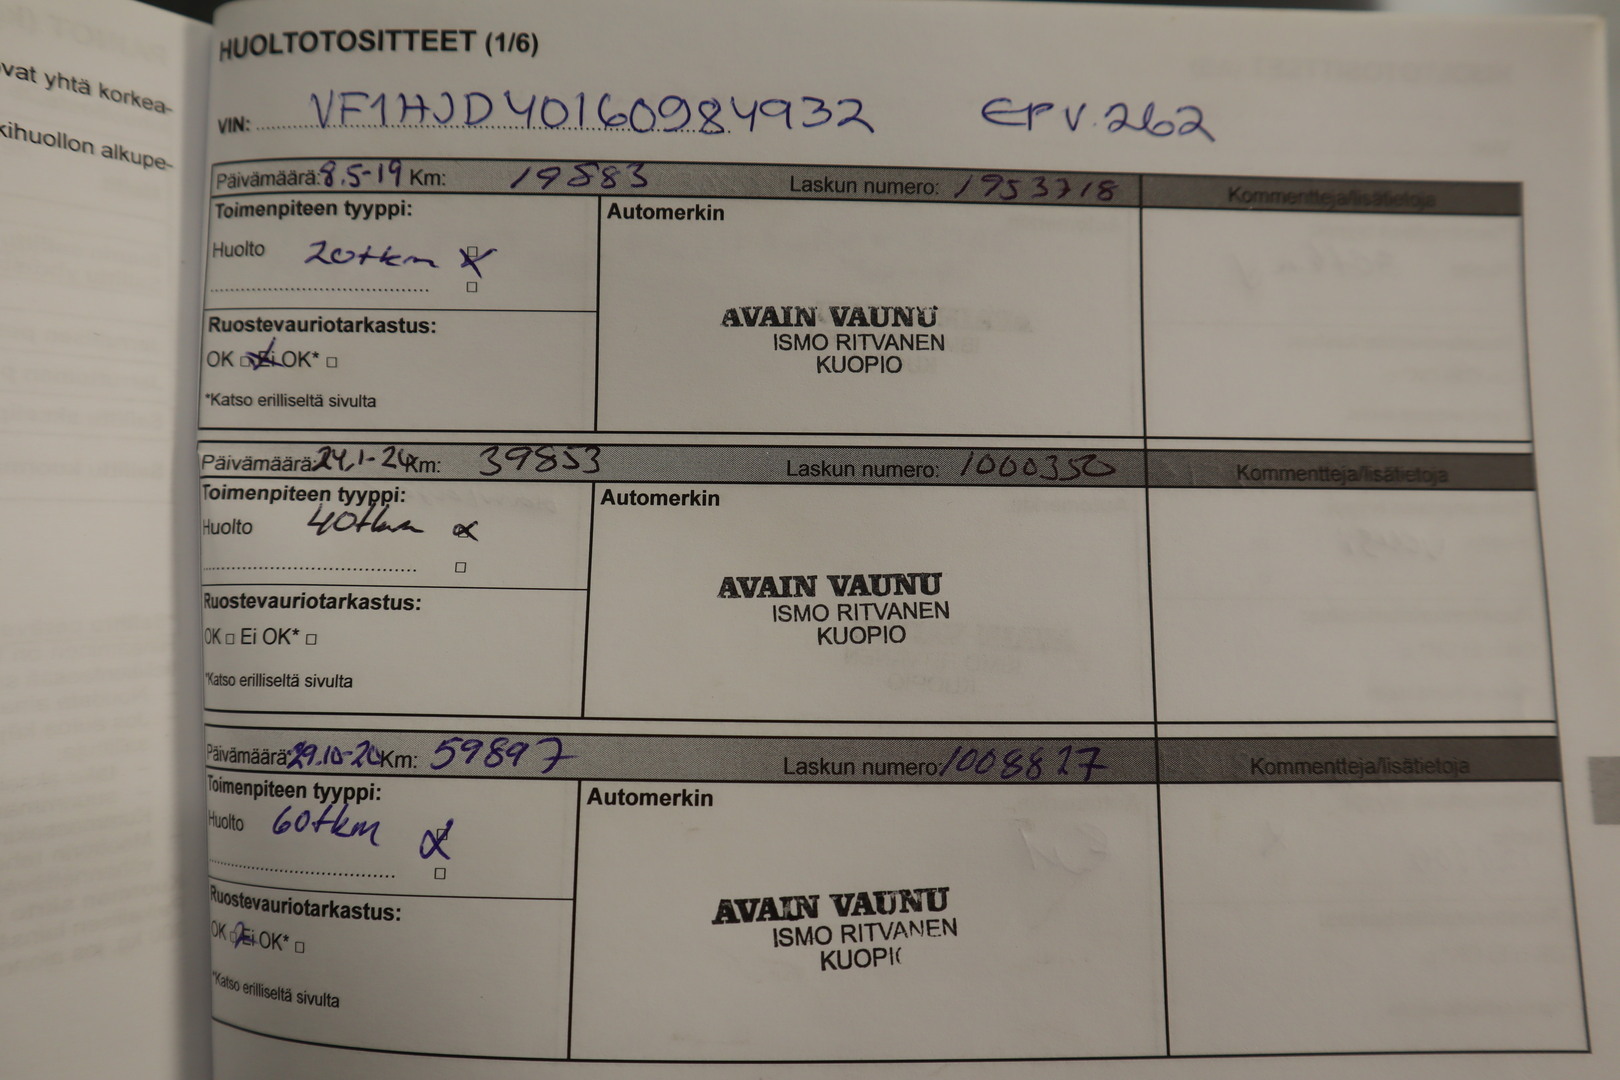 vat yhtä korkea-
kihuollon alkupe-
HUOLTOTOSITTEET (1/6)
VIN: VF1HJD40160984932 EPV.262
Päivämäärä: 8.5-19 Km: 19883 Laskun numero: 1953718 Kommentteja/lisätietoja
Toimenpiteen tyyppi: Automerkin
Huolto 20tkm
AVAIN VAUNU
Ruostevauriotarkastus:
ISMO RITVANEN
OK □ Ei OK* □
KUOPIO
*Katso erilliseltä sivulta
Päivämäärä: 24.1-20 Km: 39853 Laskun numero: 1000350 Kommentteja/lisätietoja
Toimenpiteen tyyppi: Automerkin
Huolto 40tkm
AVAIN VAUNU
Ruostevauriotarkastus:
ISMO RITVANEN
OK □ Ei OK* □
KUOPIO
*Katso erilliseltä sivulta
Päivämäärä: 29.10-20 Km: 59897 Laskun numero: 1008827 Kommentteja/lisätietoja
Toimenpiteen tyyppi: Automerkin
Huolto 60tkm
AVAIN VAUNU
Ruostevauriotarkastus:
ISMO RITVANEN
OK □ Ei OK* □
KUOPI
*Katso erilliseltä sivulta